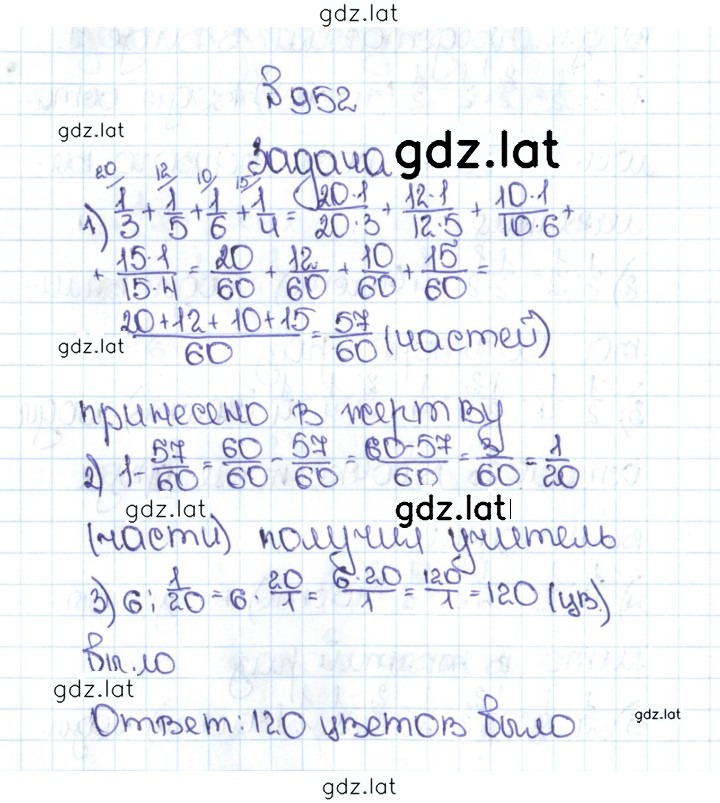 gdz.lat
№952
gdz.lat
Задача gdz.lat
20 12 10 15
1) 1/3 + 1/5 + 1/6 + 1/4 = 20·1/20·3 + 12·1/12·5 + 10·1/10·6 +
+ 15·1/15·4 = 20/60 + 12/60 + 10/60 + 15/60 =
20+12+10+15/60 = 57/60 (частей)
gdz.lat
принесено в жертву
2) 1 - 57/60 = 60/60 - 57/60 = 60-57/60 = 3/60 = 1/20
gdz.lat gdz.lat
(части) получил учитель
3) 6 : 1/20 = 6 · 20/1 = 6·20/1 = 120/1 = 120 (цв.)
было
gdz.lat
Ответ: 120 цветов было
gdz.lat
gdz.lat